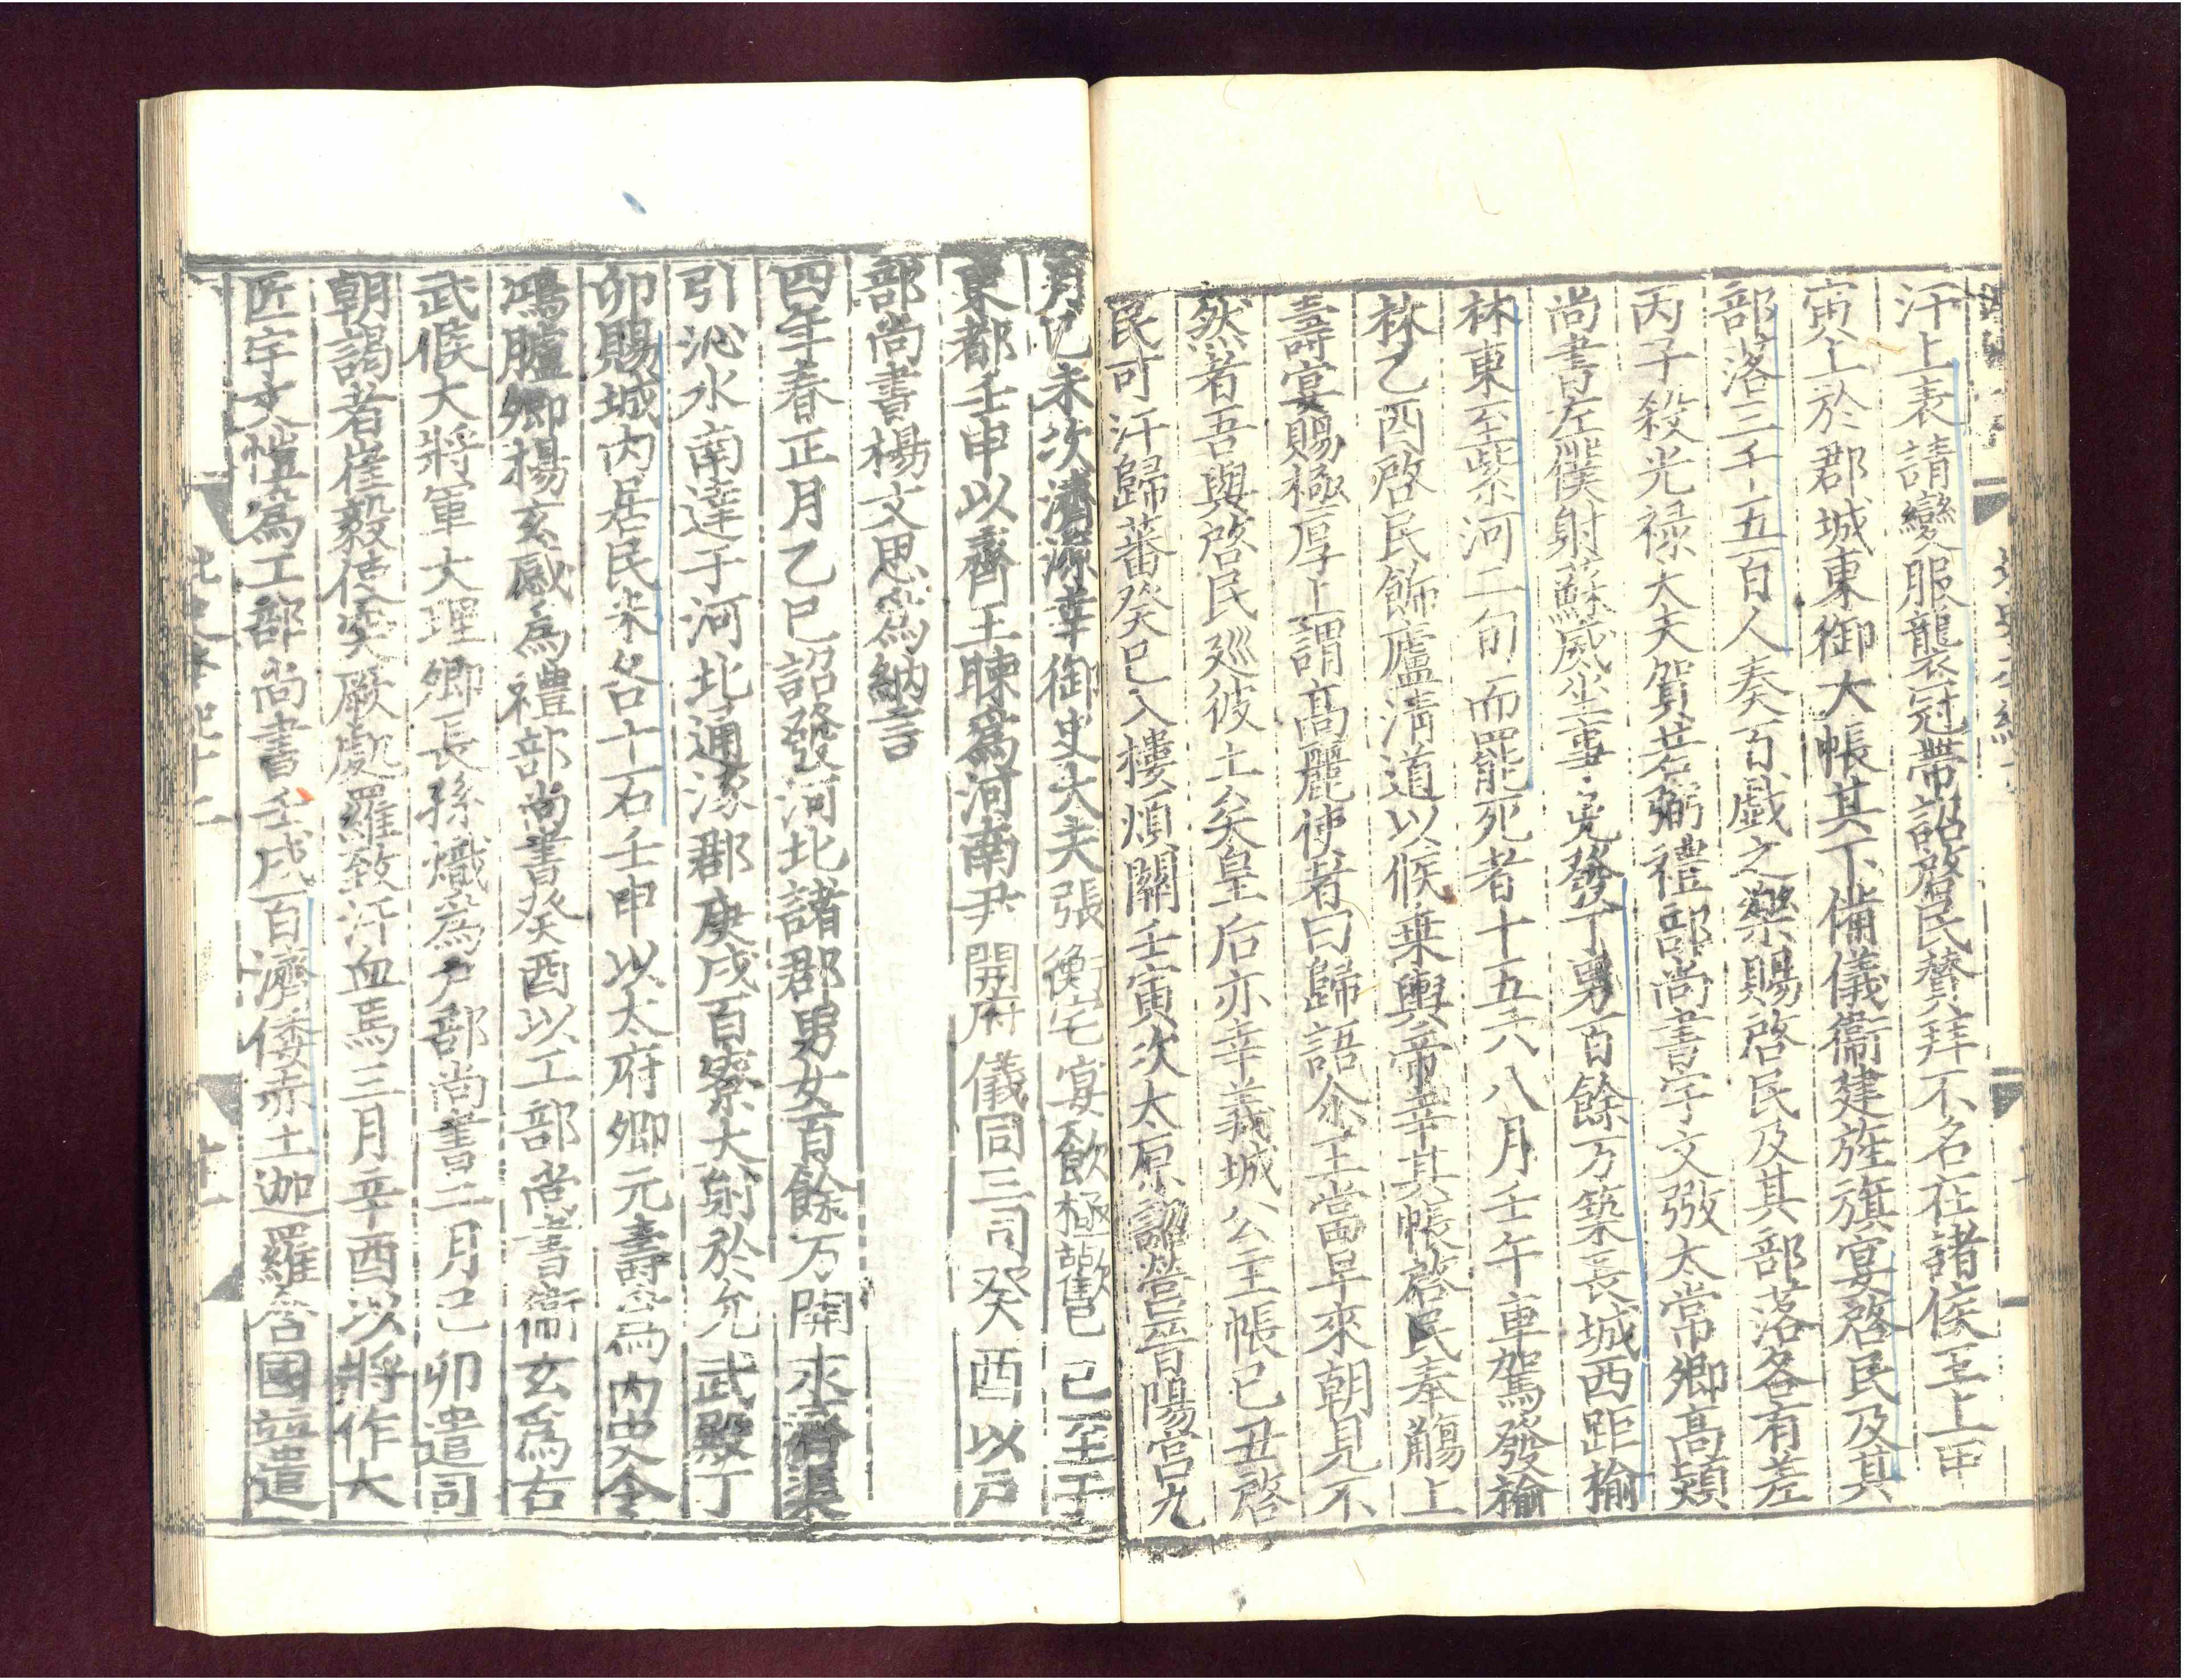 汗上表請變服襲衣冠帶詔啓民贊拜不名在諸侯王上甲
寅上於郡城東御大帳其下備儀衞建旌旗宴啓民及其
部落三千五百人奏百戲之樂賜啓民及其部落各有差
丙子殺光祿大夫賀若弼禮部尚書宇文㢸太常卿高熲
尚書左僕射蘇威坐事免發丁男百餘万築長城西距榆
林東至紫河二旬而罷死者十五六八月壬午車駕發榆
林乙酉啓民飾廬清道以候乗輿帝幸其帳啓民奉觴上
壽宴賜極厚上謂高麗使者曰歸語尒王當早來朝見不
然者吾與啓民廵彼土矣皇后亦幸義城公主帳巳丑啓
民可汗歸蕃癸巳入樓煩關壬寅次太原詔營晉陽宫九
月己未次濟源幸御史大夫張衡宅宴飲極歡己巳至于
東都壬申以齊王暕爲河南尹開府儀同三司癸酉以戸
部尚書楊文思爲納言
四年春正月乙巳詔發河北諸郡男女百餘万開永濟渠
引沁水南達于河北通涿郡庚戌百寮大射於允武殿丁
卯賜城内居民米各十石壬申以太府卿元壽爲内史令
鴻臚卿楊玄感爲禮部尚書癸酉以工部尚書衞玄爲右
武候大將軍大理卿長孫熾爲戸部尚書二月己卯遣司
朝謁者崔毅使突厥處羅致汗血馬三月辛酉以將作大
匠宇文愷爲工部尚書壬戌百濟倭赤土迦羅舍國並遣
北史本紀十二